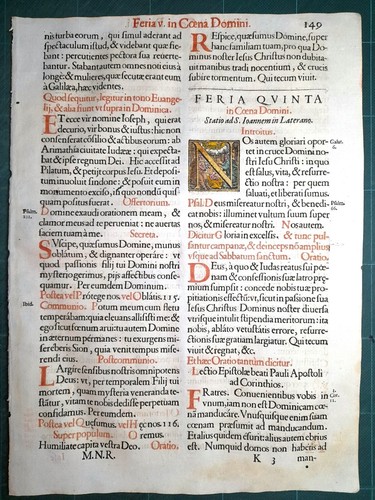 Feria v. in Cœna Domini. 149
nis turba eorum, qui simul aderant ad
spectaculum istud, & videbant quæ fie-
bant: percutientes pectora sua reuerte-
bantur. Stabant autem omnes noti eius à
longè: & mulieres, quæ secutæ erant eum
à Galilæa, hæc videntes.
Quod sequitur, legitur in tono Euange-
lij, & alia fiunt vt supra in Dominica.
ET ecce vir nomine Ioseph, qui erat
decurio, vir bonus & iustus: hic non
consenserat cõsilio, & actibus eorum: ab
Arimathæa ciuitate Iudææ: qui expecta-
bat & ipse regnum Dei. Hic accessit ad
Pilatum, & petijt corpus Iesu. Et deposi-
tum inuoluit sindone: & posuit eum in
monumento exciso, in quo nondũ quis-
quam positus fuerat. Offertorium.
Domine exaudi orationem meam, &
clamor meus ad te perueniat: ne auertas
faciem tuam à me. Secreta.
SVscipe, quæsumus Domine, munus
oblatum, & dignanter operare: vt
quod passionis filij tui Domini nostri
mysterio gerimus, pijs affectibus conse-
quamur. Per eumdem Dominum.
Postea vel Protege nos. vel Oblatis. 115.
Communio. Potum meum cum fletu
temperabam: quia eleuans allisisti me: &
ego sicut fœnum arui: tu autem Domine
in æternum permanes: tu exurgens mi-
sereberis Sion, quia venit tempus mise-
rendi eius. Postcommunio.
LArgire sensibus nostris omnipotens
Deus: vt, per temporalem Filij tui
mortem, quam mysteria veneranda te-
stantur, vitam te nobis dedisse perpetuam
confidamus. Per eumdem.
Postea vel Quæsumus. vel Hęc nos 116.
Super populum. Oremus.
Humiliate capita vestra Deo. Oratio.
M.N.R.
REspice, quæsumus Domine, super
hanc familiam tuam, pro qua Do-
minus noster Iesus Christus non dubita-
uit manibus tradi nocentium, & crucis
subire tormentum. Qui tecum viuit.
FERIA QVINTA
in Cœna Domini.
Statio ad S. Ioannem in Laterano.
Introitus.
NOs autem gloriari opor-
tet in cruce Domini no-
stri Iesu Christi: in quo
est salus, vita, & resurre-
ctio nostra: per quem
saluati, et liberati sumus.
Psal. Deus misereatur nostri, & benedi-
cat nobis: illuminet vultum suum super
nos, & misereatur nostri. Nos autem.
Dicitur Gloria in excelsis. & tunc pul-
santur campanæ, & deinceps nõ amplius
vsque ad Sabbatum sanctum. Oratio.
DEus, à quo & Iudas reatus sui pœ-
nam & confessionis suæ latro præ-
mium sumpsit: concede nobis tuæ pro-
pitiationis effectũ: vt, sicut in passione sua
Iesus Christus Dominus noster diuersa
vtrisque intulit stipendia meritorum: ita
nobis, ablato vetustatis errore, resurre-
ctionis suæ gratiam largiatur. Qui tecum
viuit & regnat, &c.
Et hæc Oratio tantùm dicitur.
Lectio Epistolæ beati Pauli Apostoli
ad Corinthios.
FRatres. Conuenientibus vobis in
vnum, iam non est Dominicam cœ-
nã manducare. Vnusquisque enim suam
cœnam præsumit ad manducandum.
Et alius quidem esurit: alius autem ebrius
est. Numquid domos non habetis ad
K 3 man-